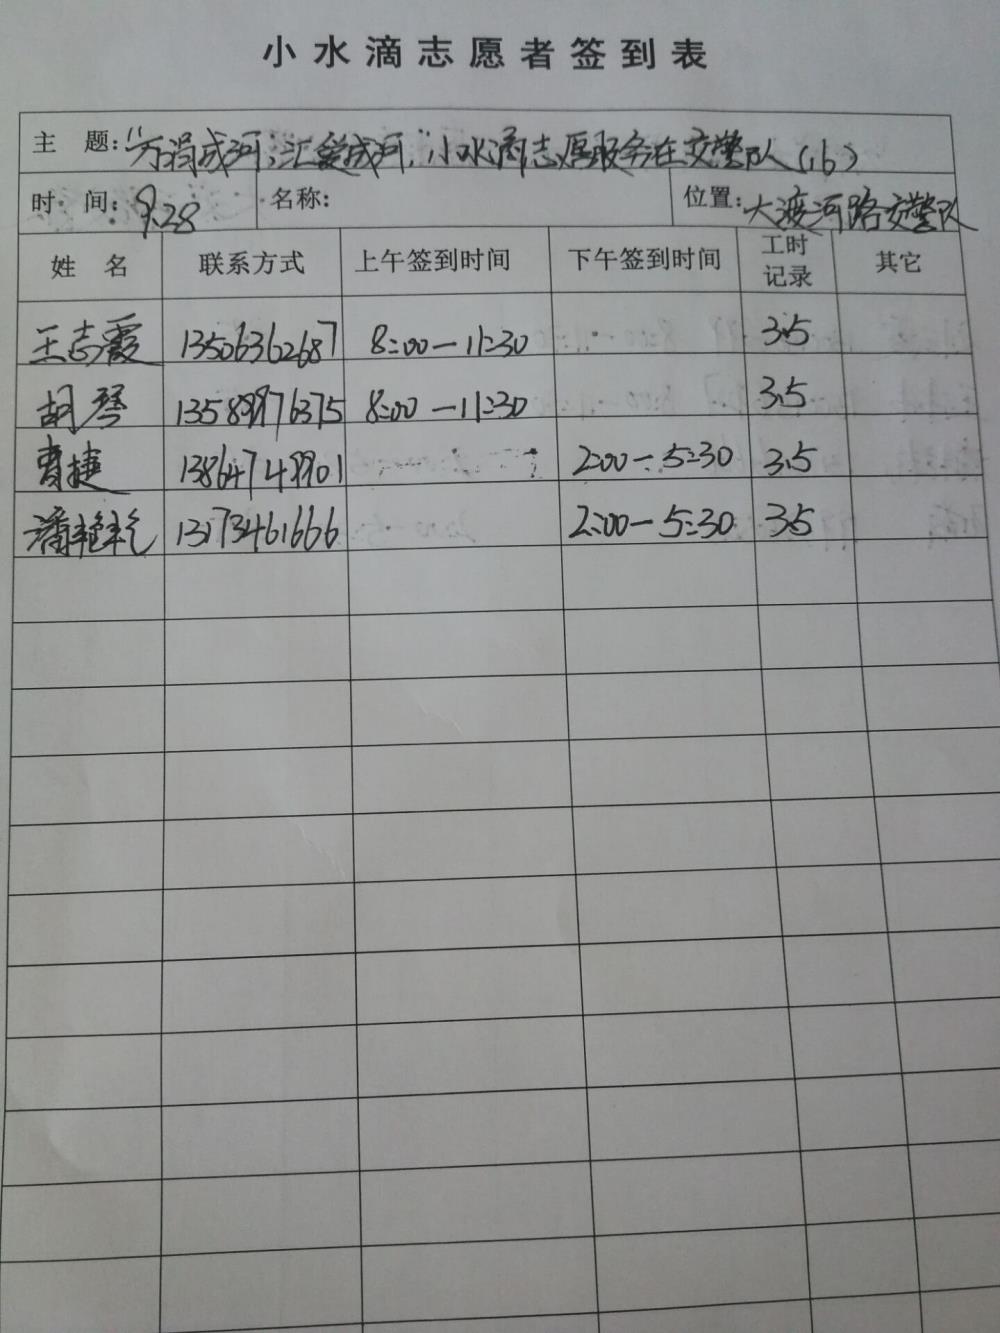 小水滴志愿者签到表
主 题："万涓成河，汇爱成河"，小水滴志愿服务在交警队(16)
时 间：9.28 名称： 位置：大渡河路交警队
姓 名 联系方式 上午签到时间 下午签到时间 工时记录 其它
王志霞 13506362687 8:00—11:30 3.5
胡琴 13589976375 8:00—11:30 3.5
曹捷 13864749901 2:00—5:30 3.5
潘艳艳 13173461666 2:00—5:30 3.5